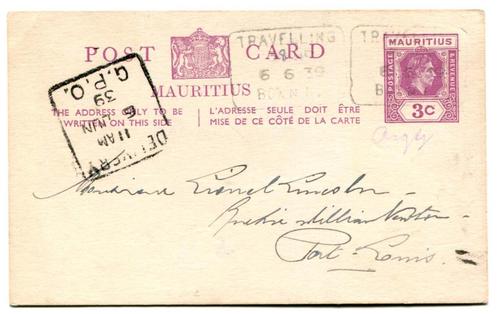 POST CARD
MAURITIUS
THE ADDRESS ONLY TO BE
WRITTEN ON THIS SIDE
L'ADRESSE SEULE DOIT ÊTRE
MISE DE CE CÔTÉ DE LA CARTE
TRAVELLING
6 6 39
MAURITIUS
POSTAGE
REVENUE
3C
DELIVERY
11 AM
6 JUN
39
G.P.O.
Monsieur Lionel Lincoln
William Newton
Port-Louis.